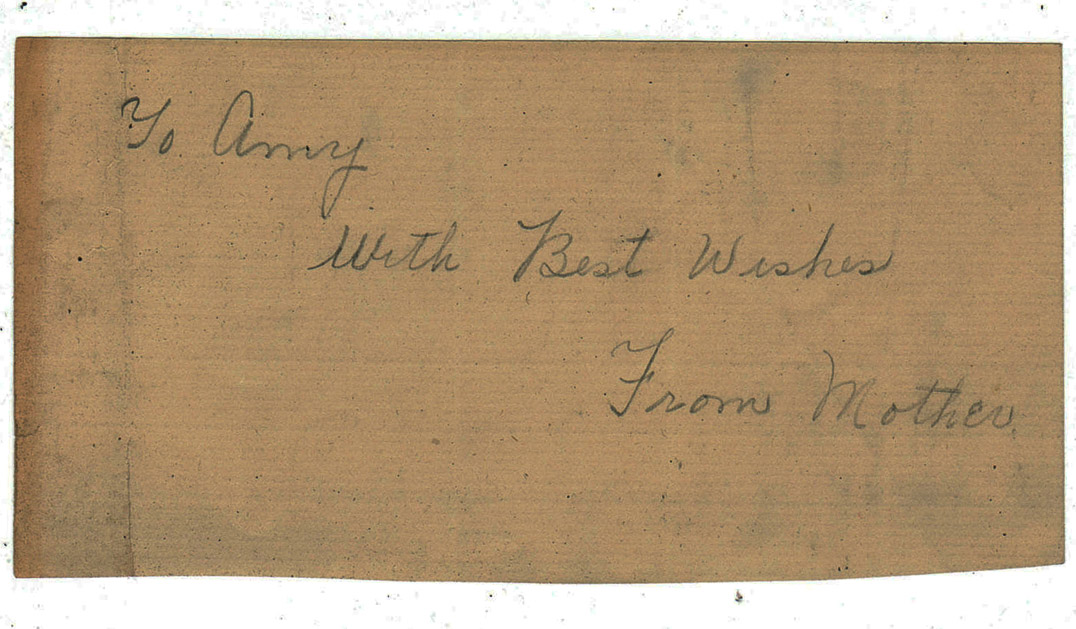 To Amy
With Best Wishes
From Mother.